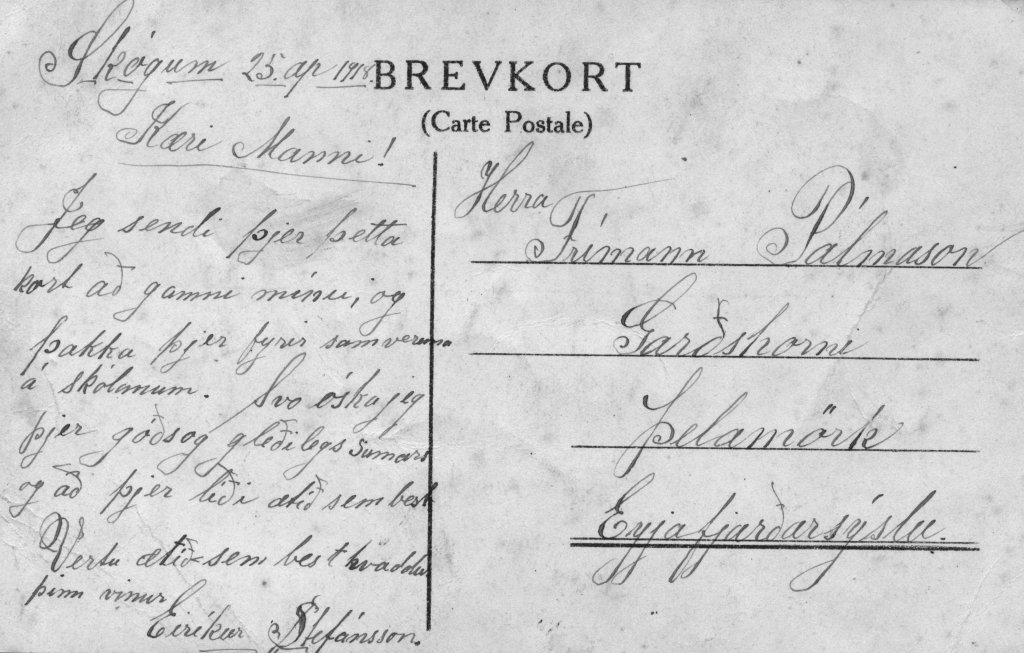 Skógum 25. ap 1918.
BREVKORT
(Carte Postale)
Kæri Manni!
Jeg sendi þjer þetta
kort að gamni mínu, og
þakka þjer fyrir samveruna
á skólanum. Svo óska jeg
þjer góðs og gleðilegs sumars
og að þjer líði ætíð sem best
Vertu ætíð sem best kvaddur
þinn vinur
Eiríkur Stefánsson.
Herra
Frímann Pálmason
Garðshorni
Þelamörk
Eyjafjarðarsýslu.